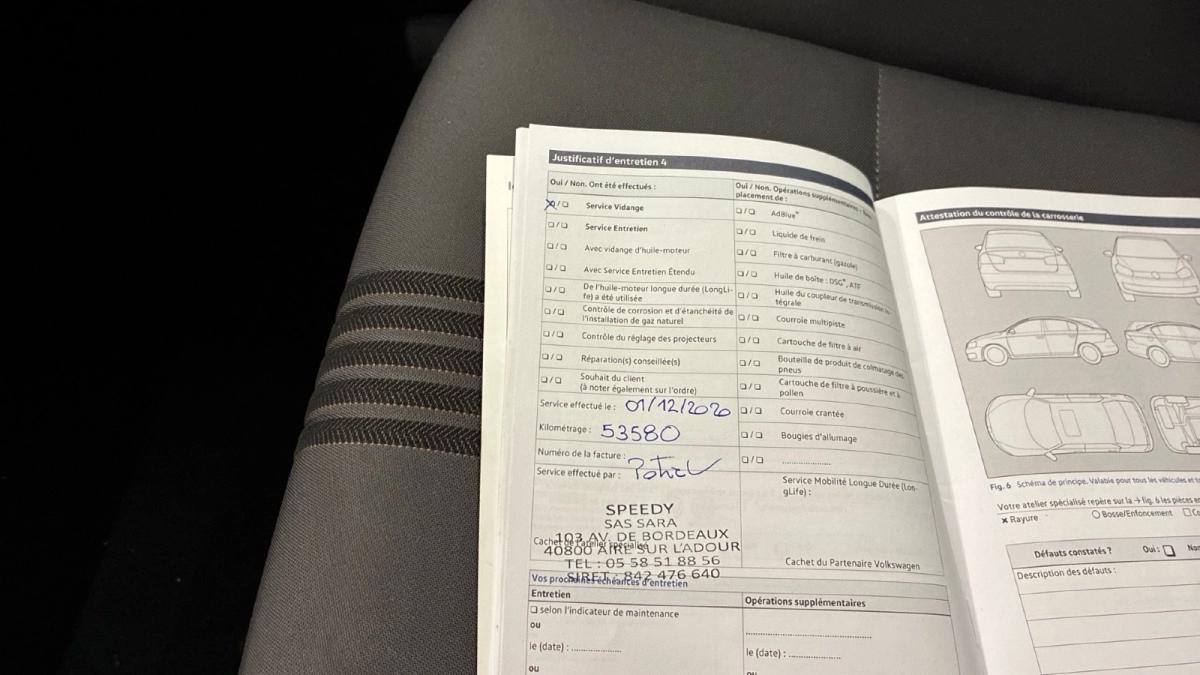 Justificatif d'entretien 4
Oui / Non. Ont été effectués :
❑/❑ Service Vidange
❑/❑ Service Entretien
❑/❑ Avec vidange d'huile-moteur
❑/❑ Avec Service Entretien Étendu
❑/❑ De l'huile-moteur longue durée (LongLi-
fe) a été utilisée
❑/❑ Contrôle de corrosion et d'étanchéité de
l'installation de gaz naturel
❑/❑ Contrôle du réglage des projecteurs
❑/❑ Réparation(s) conseillée(s)
❑/❑ Souhait du client
(à noter également sur l'ordre)
Service effectué le : 01/12/2020
Kilométrage : 53580
Numéro de la facture :
Service effectué par :
SPEEDY
SAS SARA
103 AV. DE BORDEAUX
Cachet de l'atelier spécialisé
40800 AIRE SUR L'ADOUR
TEL : 05 58 51 88 56
SIRET : 842 476 640
Oui / Non. Opérations supplémentaires -
placement de :
❑/❑ AdBlue®
❑/❑ Liquide de frein
❑/❑ Filtre à carburant (gasole)
❑/❑ Huile de boîte : DSG®, ATF
❑/❑ Huile du coupleur de transmission in-
tégrale
❑/❑ Courroie multipiste
❑/❑ Cartouche de filtre à air
❑/❑ Bouteille de produit de colmatage des
pneus
❑/❑ Cartouche de filtre à poussière et à
pollen
❑/❑ Courroie crantée
❑/❑ Bougies d'allumage
❑/❑ ......................
Service Mobilité Longue Durée (Lon-
gLife) :
Cachet du Partenaire Volkswagen
Vos prochaines échéances d'entretien
Entretien
❑ selon l'indicateur de maintenance
ou
le (date) : ..................
ou
Opérations supplémentaires
..............................................
le (date) : ...................
ou
Attestation du contrôle de la carrosserie
Fig. 6 Schéma de principe. Valable pour tous les véhicules et
Votre atelier spécialisé repère sur la → fig. 6 les pièces
× Rayure ○ Bosse/Enfoncement ❑
Défauts constatés ? Oui : ❑
Description des défauts :